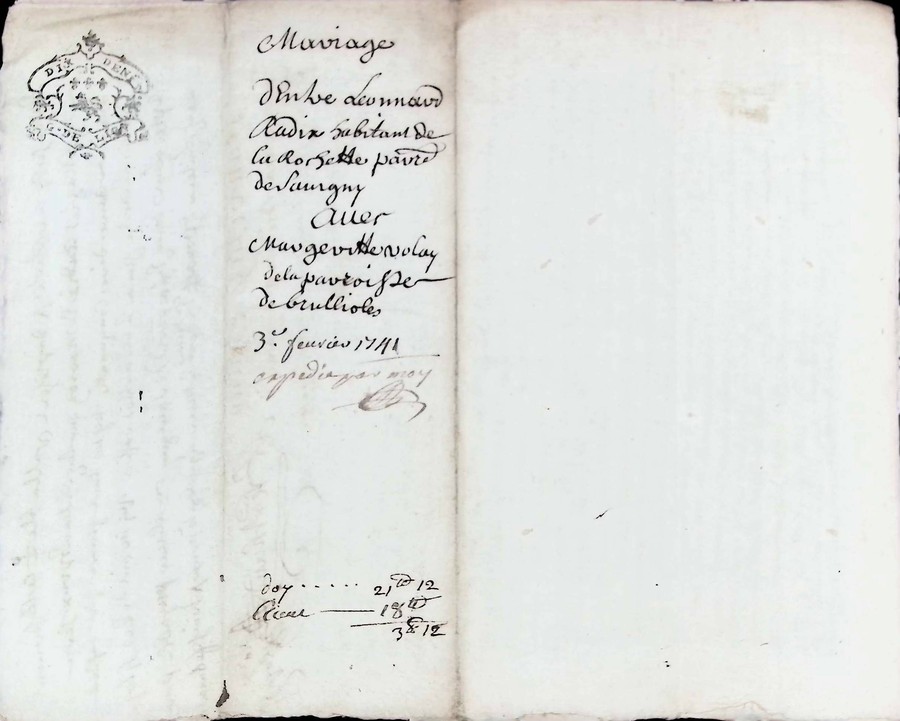 DIX DEN.
G. DE LION
Mariage
d'Entre Leonnard
Radix habitant de
la Rochette parr.e
de Savigny
Avec
Margueritte volay
de la parroisse
de brullioles
3.e fevrier 1741
expedié par moy
doy ..... 21tt 12
Receu — 18tt
3tt 12